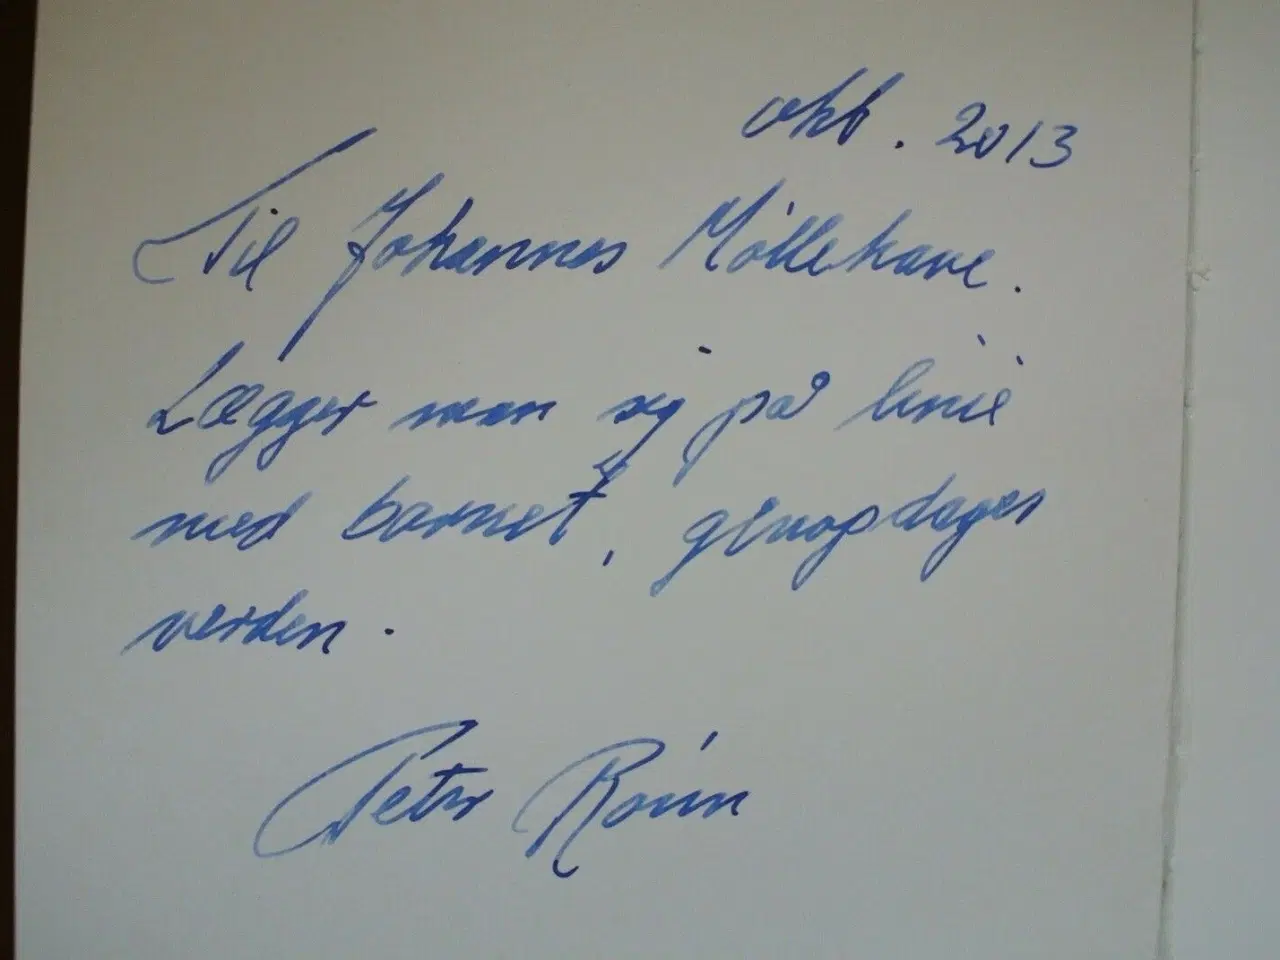 okt. 2013
Til Johannes Møllehave.
Lægger man sig på linie
med barnet, genopdages
verden.
Peter Ronin